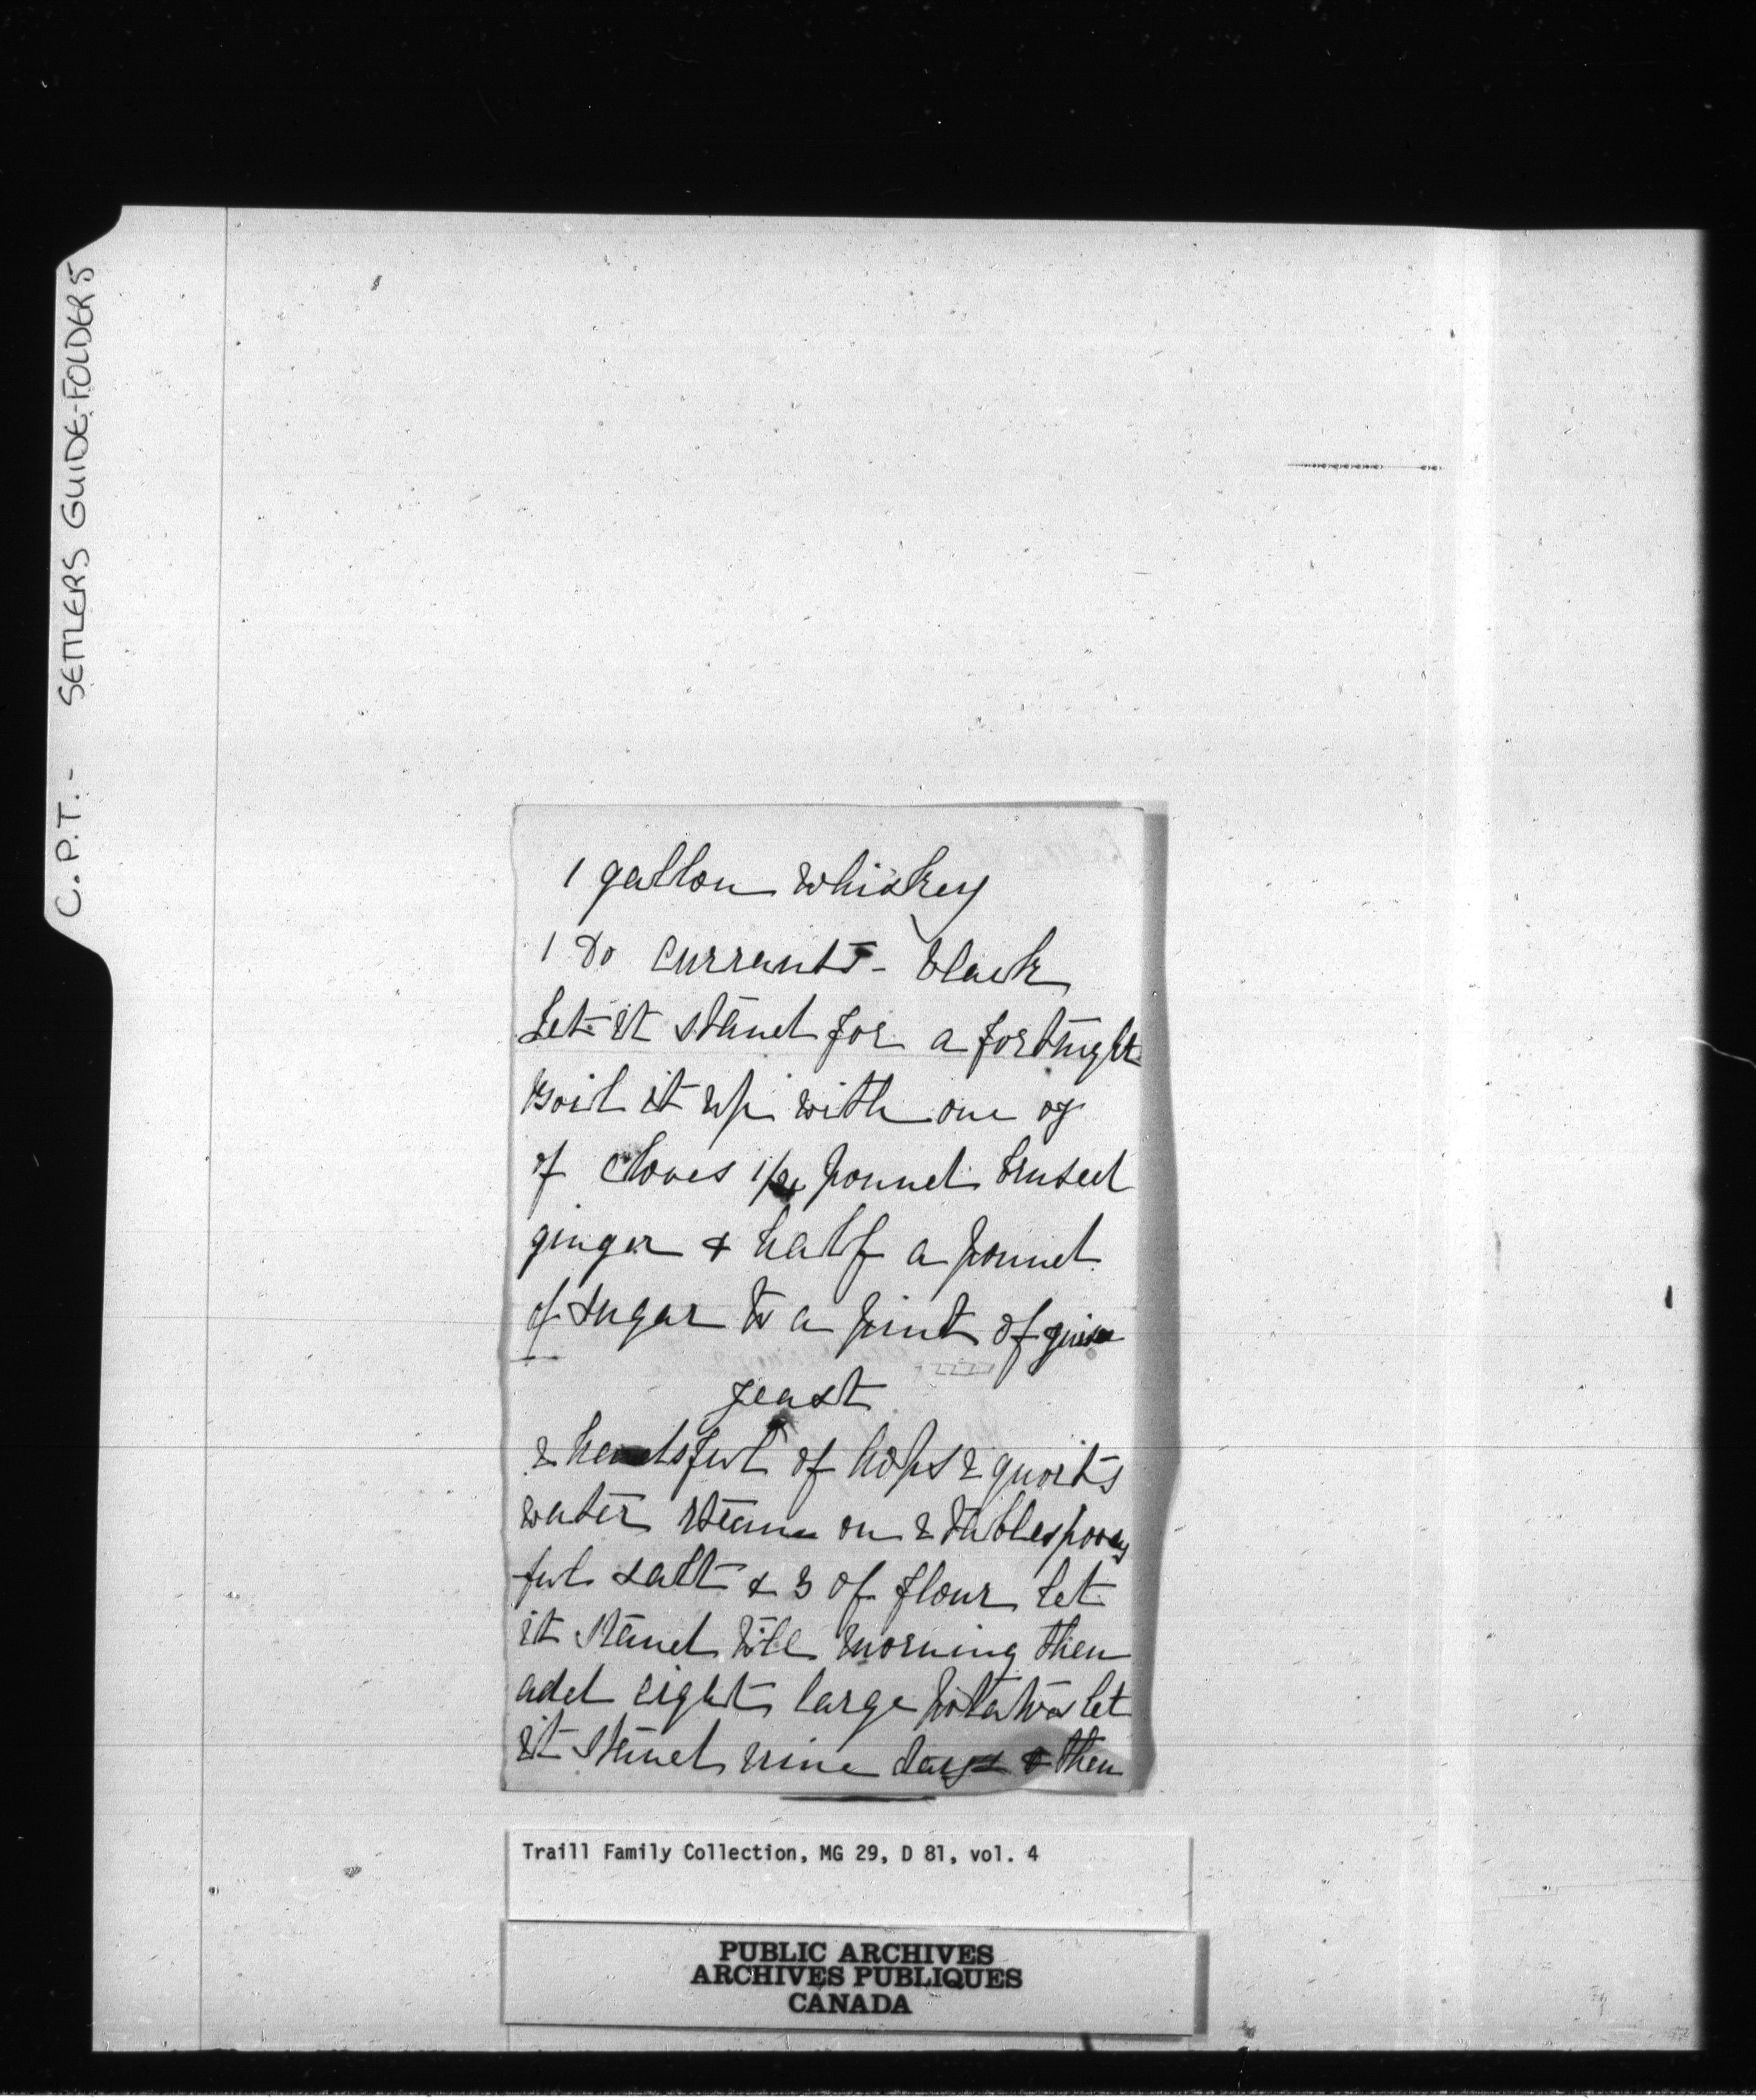 C.P.T. - SETTLERS GUIDE-FOLDER 5
1 gallon whiskey
1 Do currants - black
Let it stand for a fortnight
boil it up with one oz
of cloves 1/4 pound brused
ginger & half a pound
of sugar to a pint of
yeast
2 handsful of hops 2 quorts
water steam on 2 tablespoons
ful salt & 3 of flour let
it stand till morning then
add eight large potatoes let
it stand nine days & then
Traill Family Collection, MG 29, D 81, vol. 4
PUBLIC ARCHIVES
ARCHIVES PUBLIQUES
CANADA